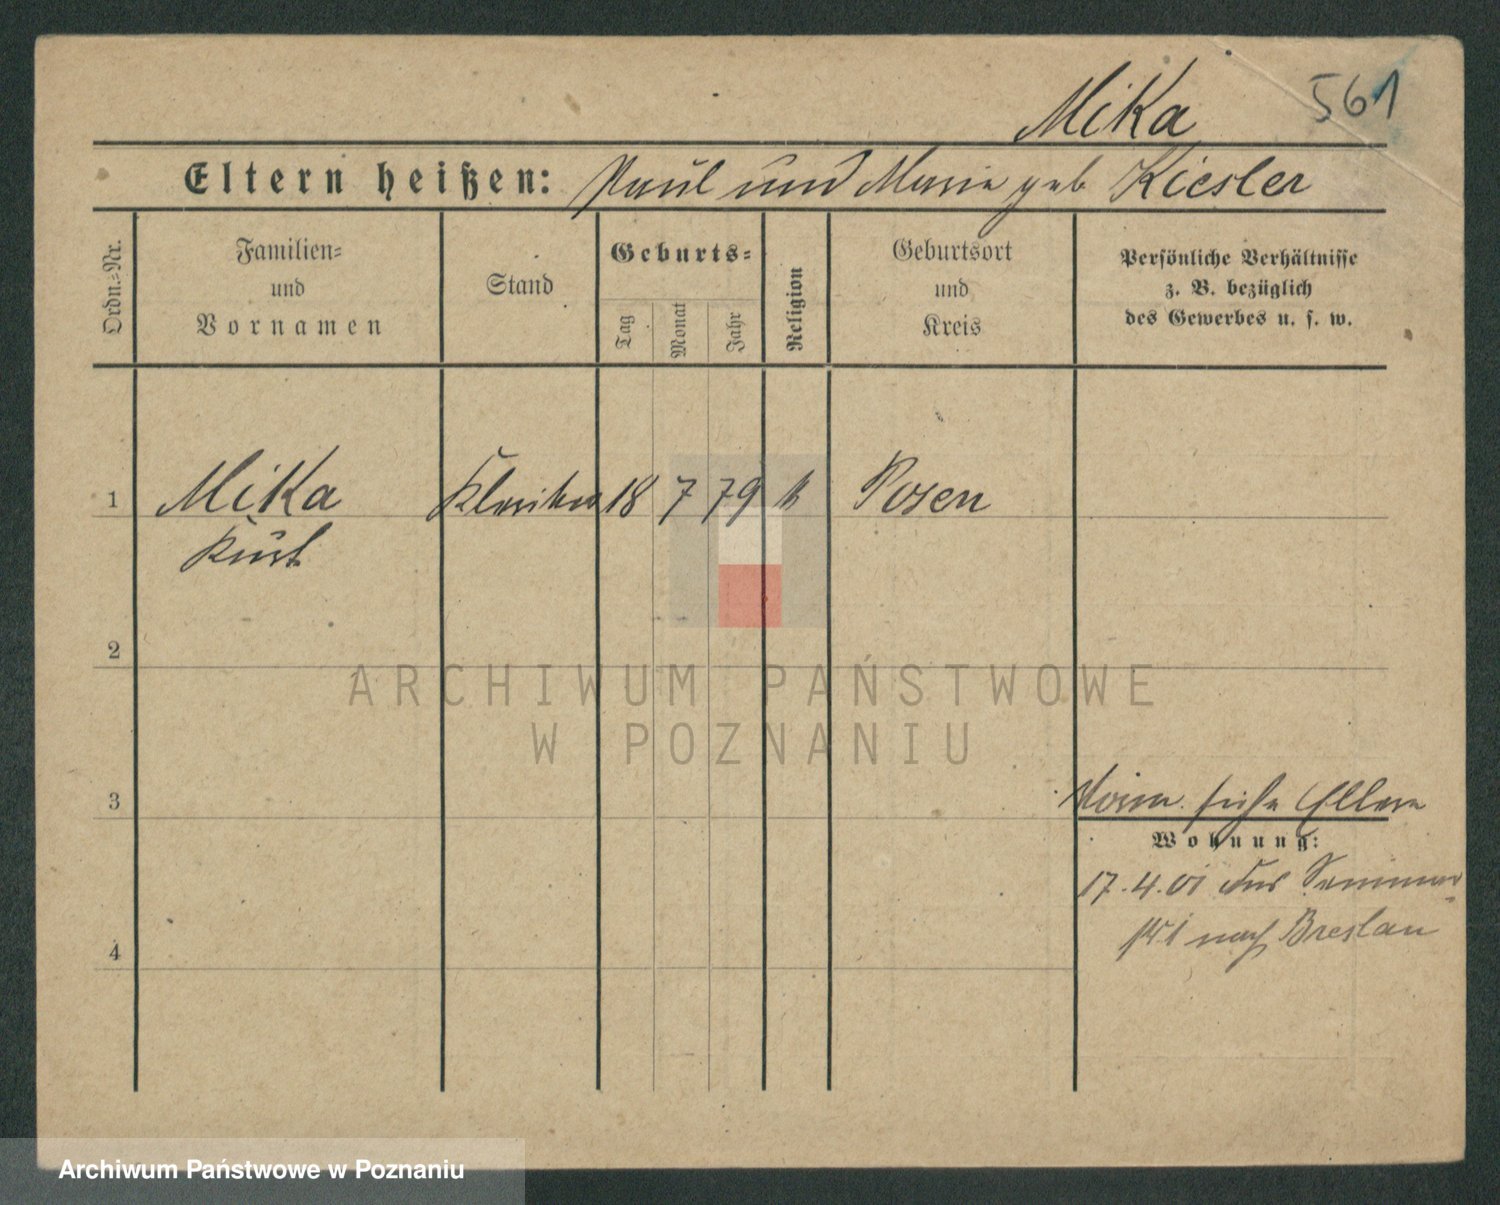 Mika
561
Eltern heißen: Paul und Marie geb Kiesler
Ordn.=Nr.
Familien=
und
Vornamen
Stand
Geburts=
Tag
Monat
Jahr
Religion
Geburtsort
und
Kreis
Persönliche Verhältnisse
z. B. bezüglich
des Gewerbes u. s. w.
1 Mika Kleriker 18 7 79 k Posen
Kurt
2
ARCHIWUM PAŃSTWOWE
W POZNANIU
3
siehe Eltern
Wohnung:
17.4.01 Seminar
4
nach Breslau
Archiwum Państwowe w Poznaniu